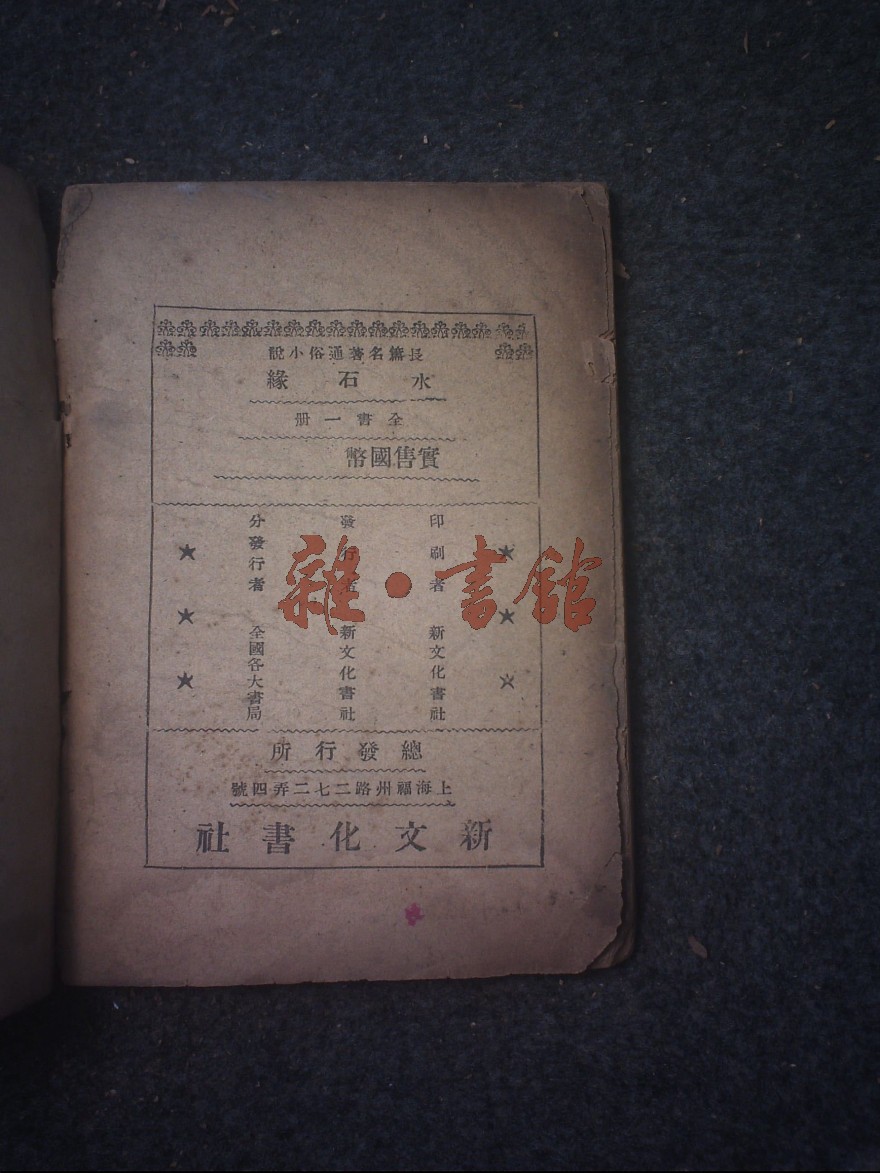 長篇名著通俗小說
水石緣
全書一冊
實售國幣
印刷者 新文化書社
發行者 新文化書社
分發行者 全國各大書局
總發行所
上海福州路二七二弄四號
新文化書社
雜·書館